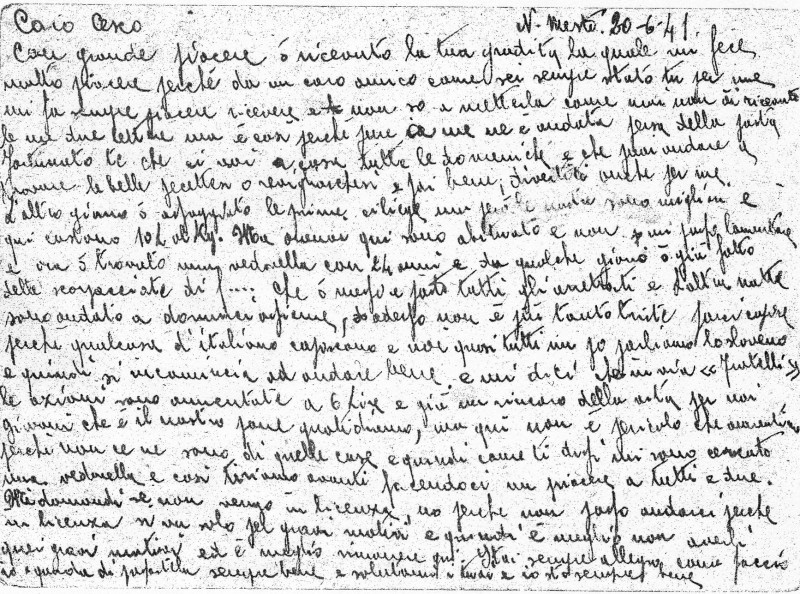 Caro Cesco N. Mesto. 20-6-41
Con grande piacere ó ricevuto la tua gradita la quale mi fece
molto piacere perché da un caro amico come sei sempre stato tu per me
mi fa sempre piacere ricevere e non so a metterla come mai non ái ricevuto
le mie due lettere ma é cosi perché pure a me ne é andata persa della posta
Fortunato te che ci vai a casa tutte le domeniche e che puoi andare a
trovare le belle e fai bene, divertiti anche per me.
L'altro giorno ó assaggiato le prime ciliege ma peró le nostre sono migliori e
qui costano 10 L al Kg. Ma oramai qui sono abituato e non mi posso lamentare
e ora ó trovato una vedovella con 24 anni e da qualche giorno ó giá fatto
delle scorpacciate di f.... che ó messo a posto tutti gli arretrati e l'altra notte
sono andato a dormire assieme, adesso non é piú tanto triste farsi capire
perché qualcosa d'italiano capiscono e noi quasi tutti un po parliamo lo sloveno
e quindi si incomincia ad andare bene e mi dici che in via « Fratelli »
le azioni sono aumentate a 6 Lire e giá un rincaro della vita per noi
giovani che é il nostro pane quotidiano, ma qui non é pericolo che aumentino
perché non ce ne sono di quelle case e quindi come ti dissi mi sono cercato
una vedovella e cosi tiriamo avanti facendoci un piacere a tutti e due.
Mi domandi se non vengo in licenza, no perche non posso andarci perche
in licenza si va solo pel gravi motivi e quindi é meglio non averli
quei gravi motivi ed é meglio rimanere qui. Stai sempre allegro come faccio
io e guarda di passartela sempre bene e salutami i tuoi e io sto sempre bene